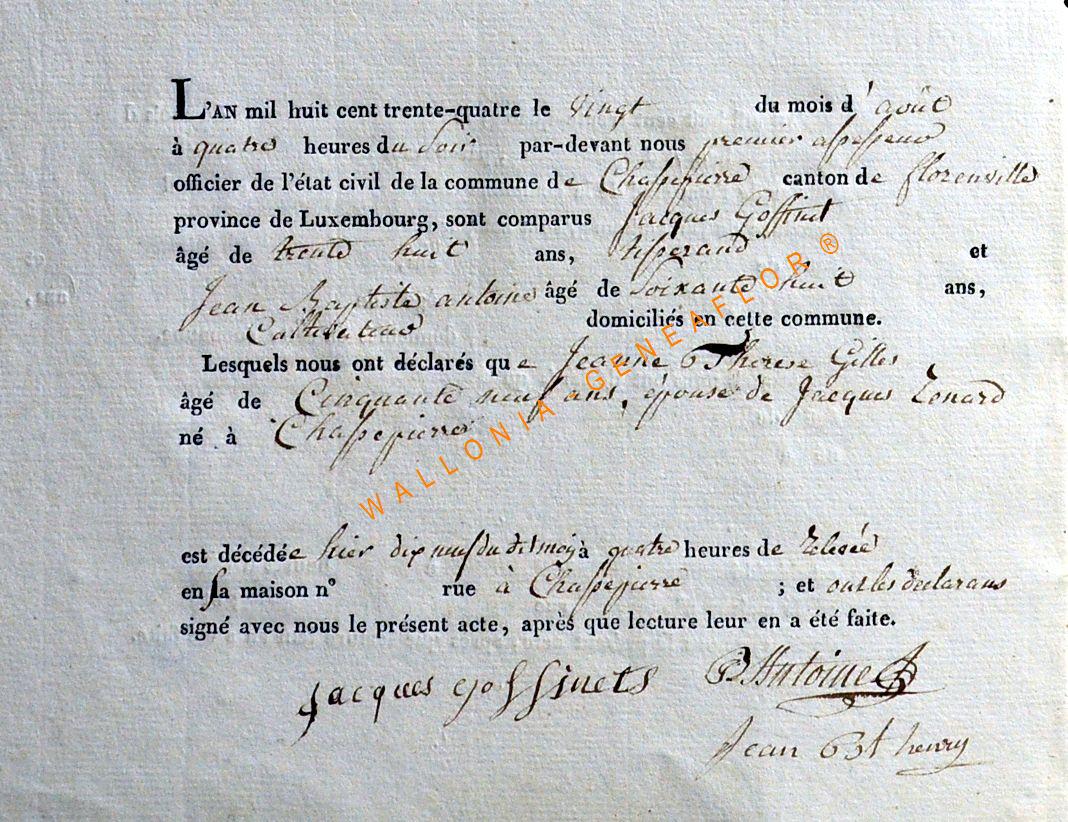 L'AN mil huit cent trente-quatre le vingt du mois d'août
à quatre heures du Soir par-devant nous premier assesseur
officier de l'état civil de la commune de Chassepierre canton de florenville
province de Luxembourg, sont comparus Jacques Goffinet
âgé de trente huit ans, tisserand et
Jean Baptiste antoine âgé de Soixante huit ans,
Cultivateur domiciliés en cette commune.
Lesquels nous ont déclarés que Jeanne Therese Gilles
âgé de Cinquante neuf ans, épouse de Jacques Zonard
né à Chassepierre
est décédée hier dix neuf du dt moy à quatre heures de relevée
en sa maison n° rue à Chassepierre ; et ont les déclarans
signé avec nous le présent acte, après que lecture leur en a été faite.
Jacques goffinets B Antoine
Jean Bt henry
WALLONIA GENEAFLOR ®